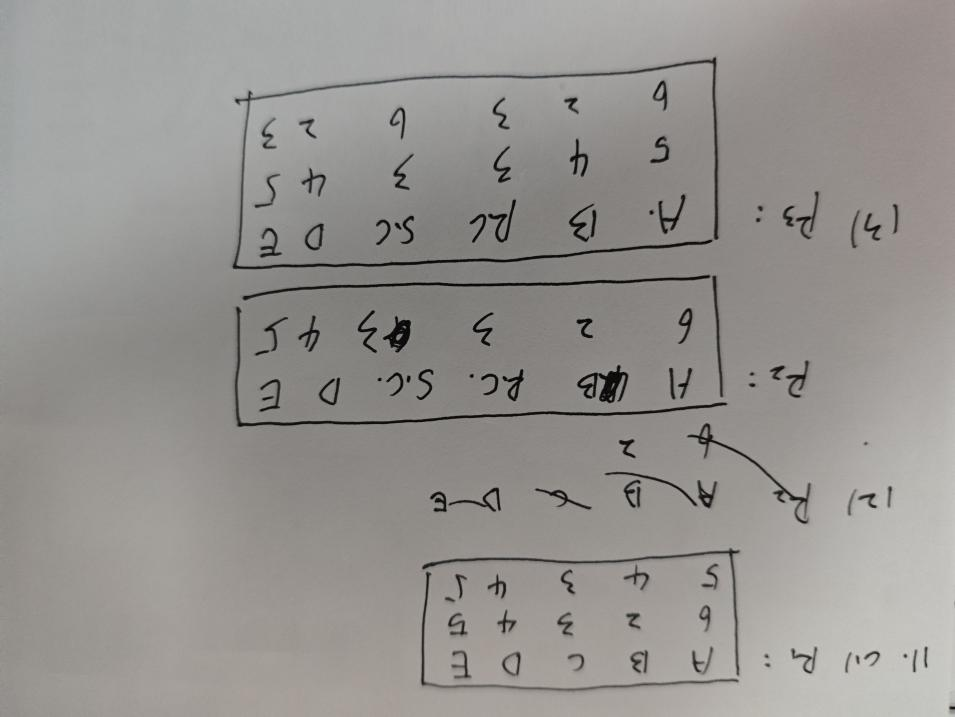 11. (1) R₁: A B C D E
6 2 3 4 5
5 4 3 4 5
(2) R₂ A B C D E
6 2
R₂: A B R.C. S.C. D E
6 2 3 3 4 5
(3) R₃: A. B R.C S.C D E
5 4 3 3 4 5
6 2 3 6 2 3